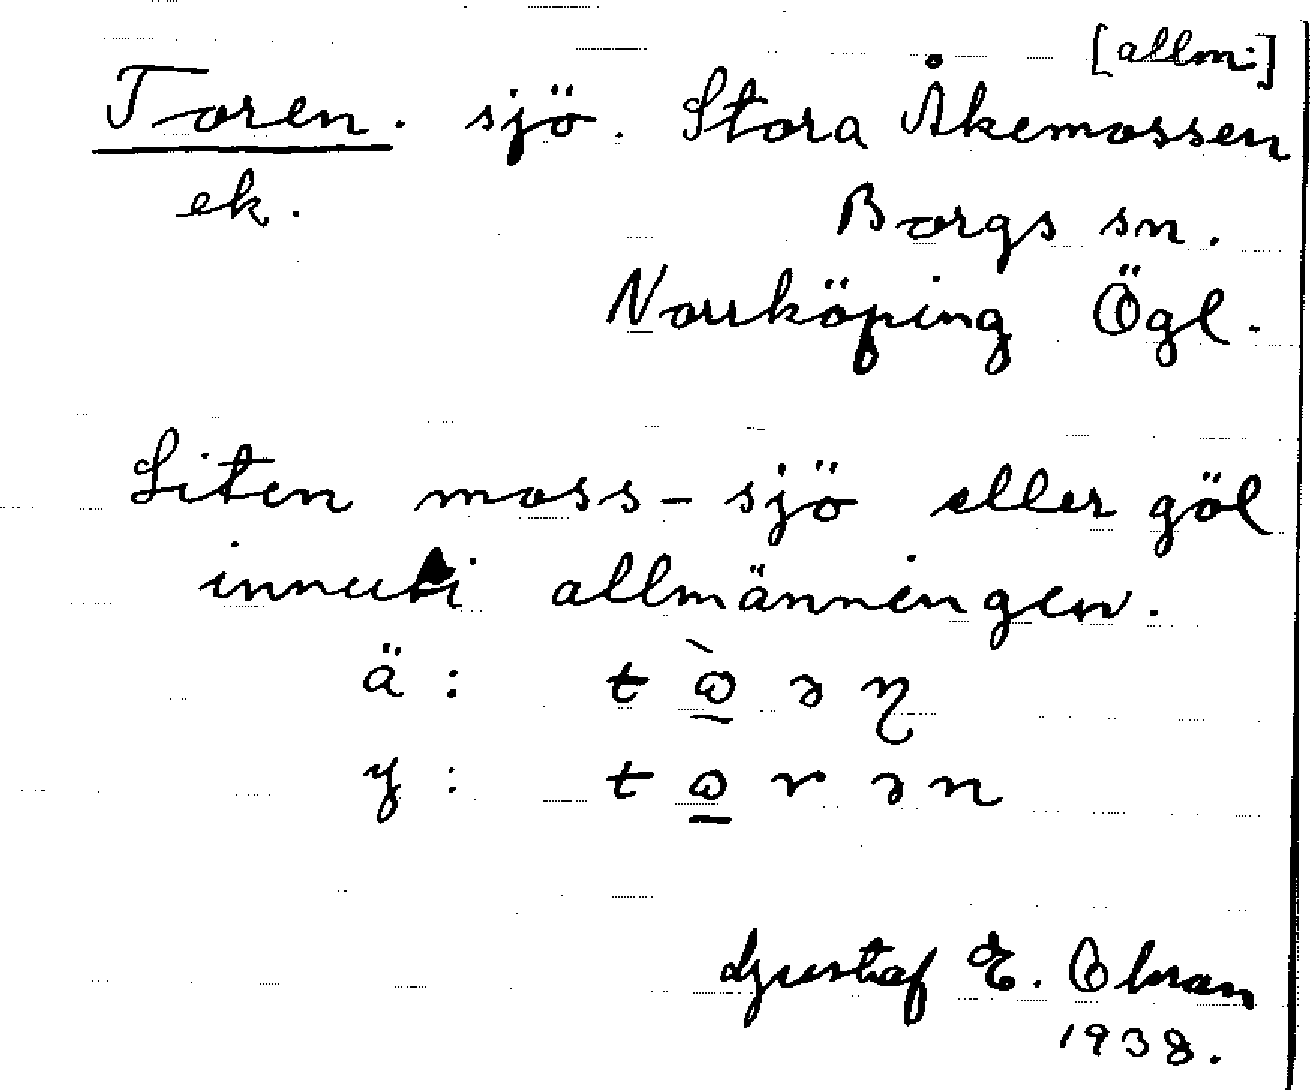 [allm:]
Toren. sjö. Stora Åkemossen
ek. Borgs sn.
Norrköping Ögl.
Liten moss-sjö eller göl
innuti allmänningen.
ä:
y:
Gustaf E.
1938.